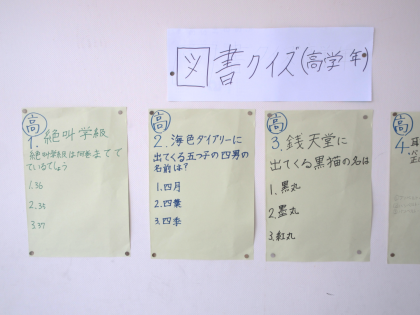 図書クイズ(高学年)
高
1. 絶叫学級
絶叫学級は何巻までで
ているでしょう
1.36
2.35
3.37
高
2. 海色ダイアリーに
出てくる五つ子の四男の
名前は?
1.四月
2.四葉
3.四季
高
3. 銭天堂に
出てくる黒猫の名は
1.黒丸
2.墨丸
3.紅丸
高
4.